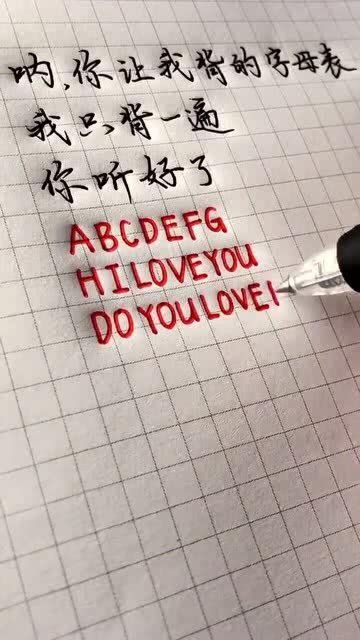 呐,你让我背的字母表
我只背一遍
你听好了
ABCDEFG
HILOVEYOU
DO YOU LOVE I